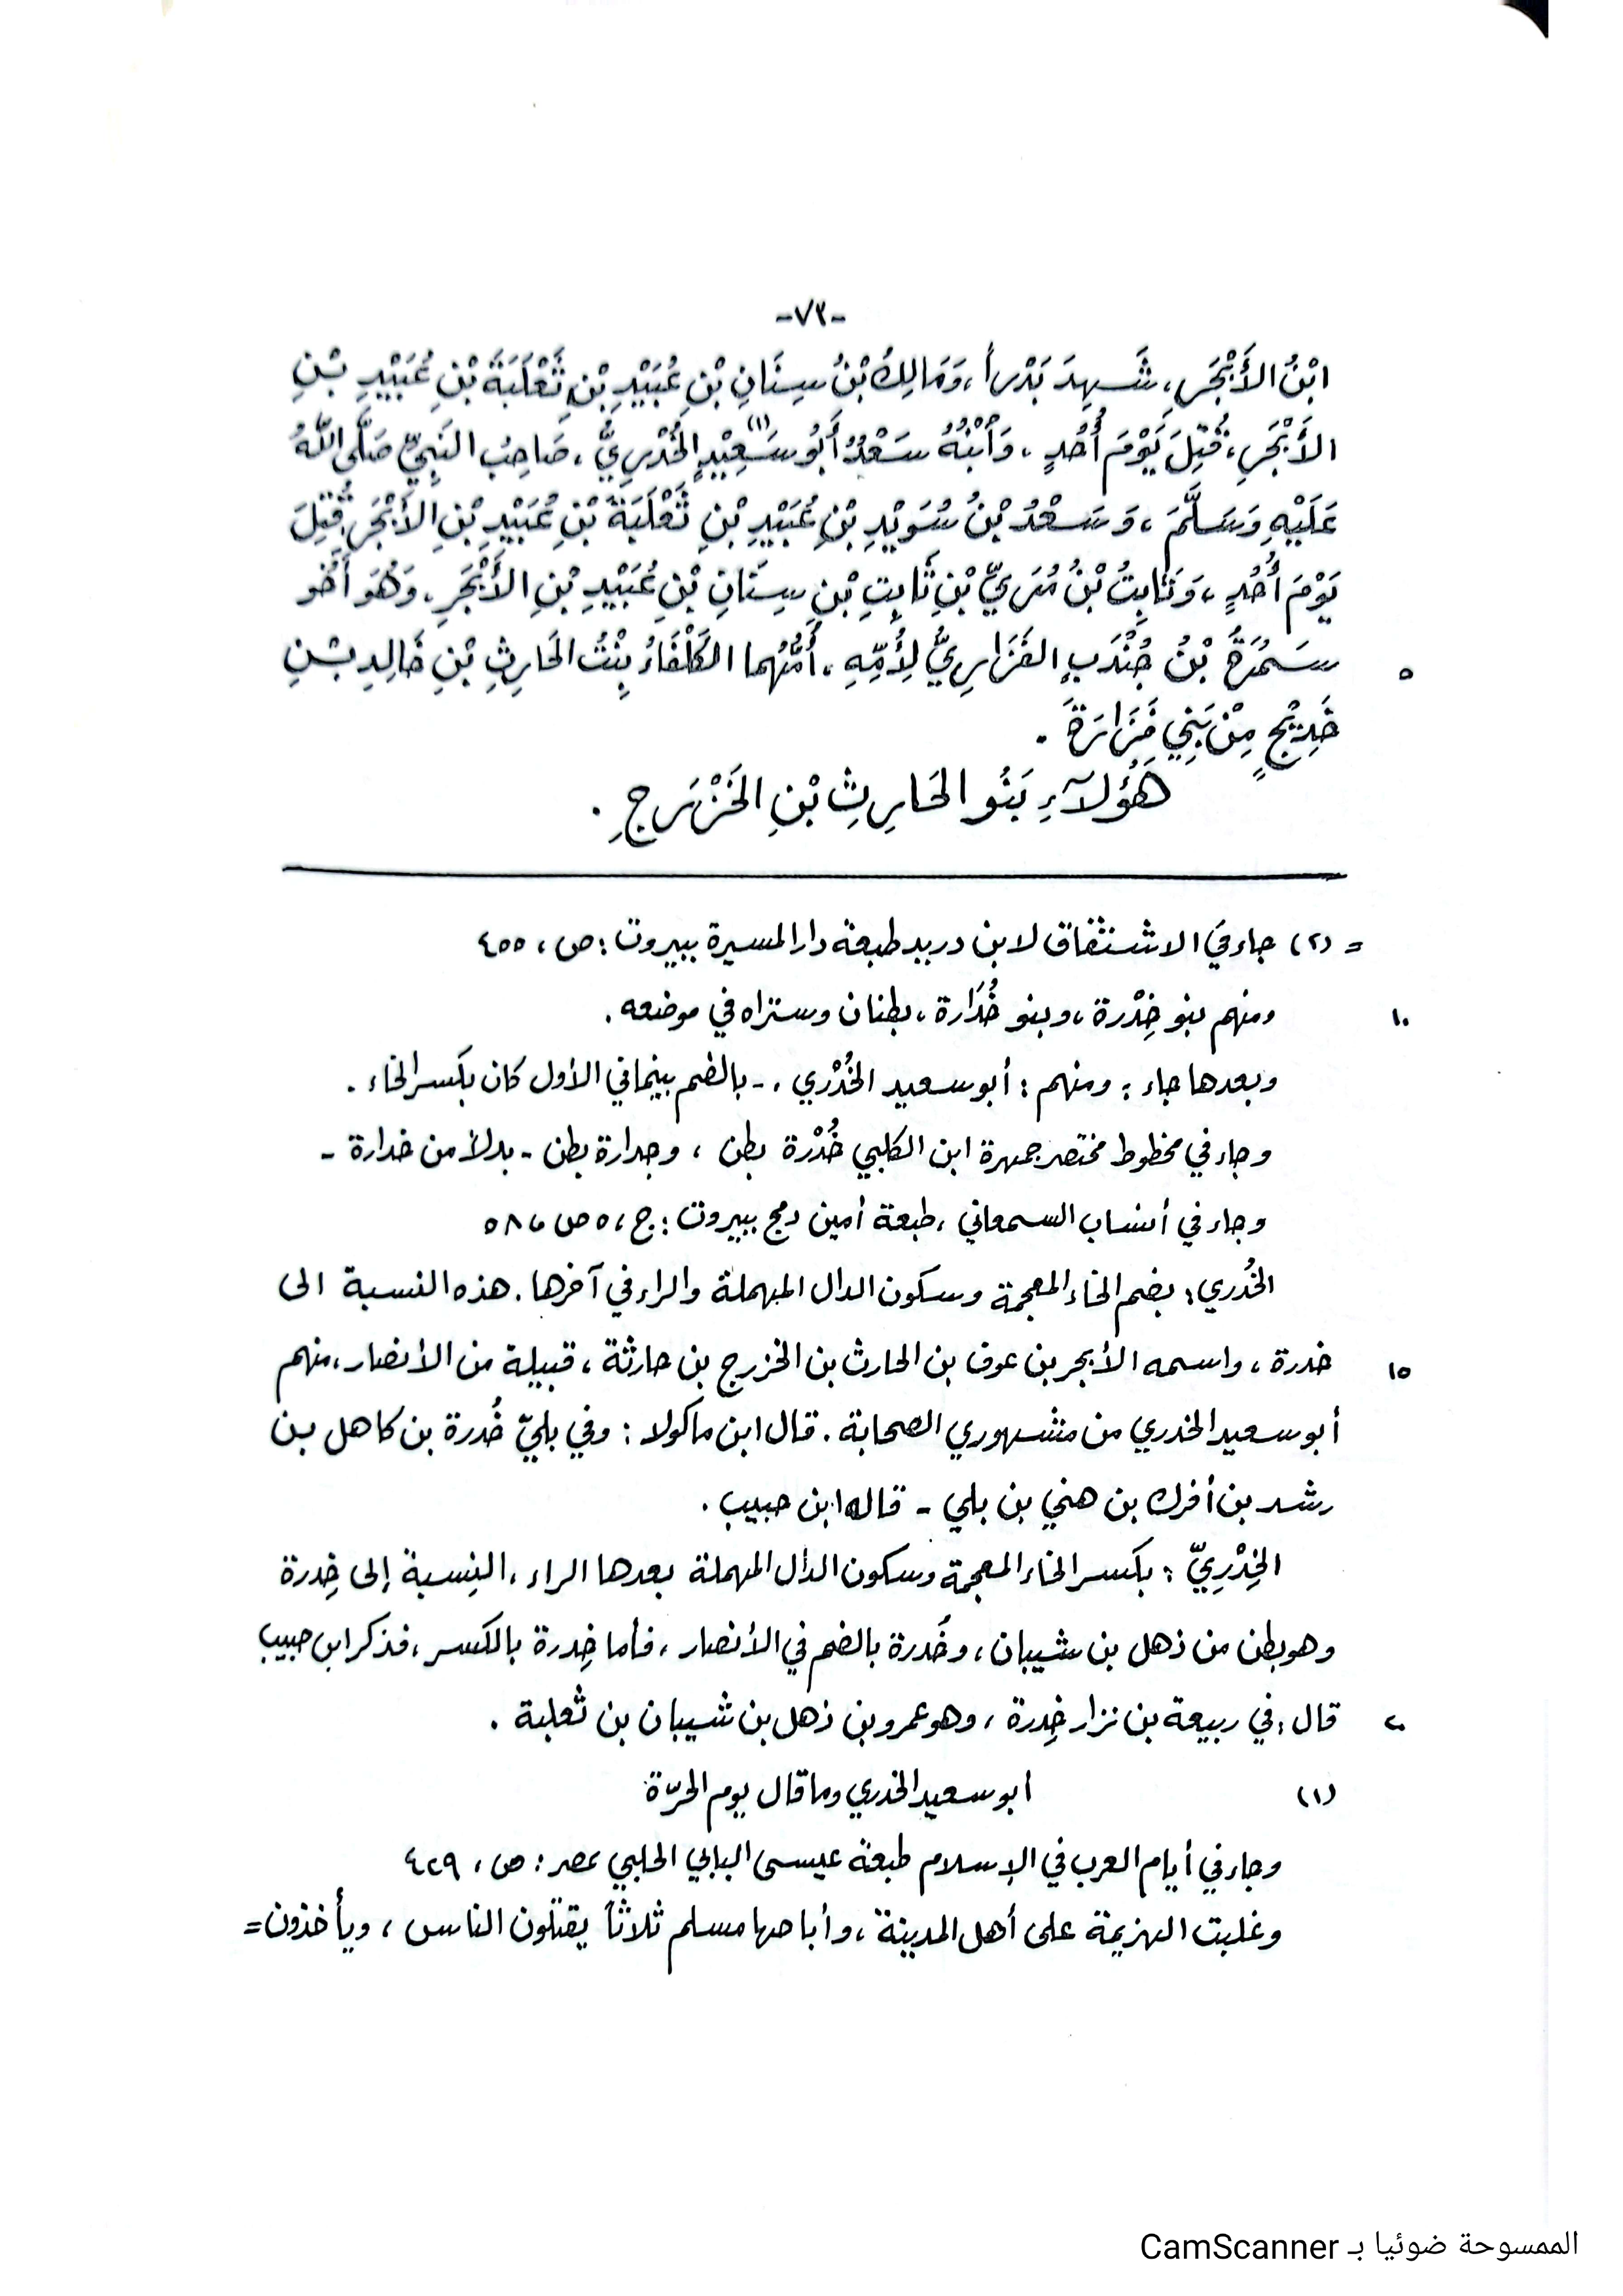 -٧٣-
ابْنُ الأَبْجَرِ، شَهِدَ بَدْراً، وَمَالِكُ بْنُ سِنَانِ بْنِ عُبَيْدِ بْنِ ثَعْلَبَةَ بْنِ عُبَيْدِ بْنِ
الأَبْجَرِ، قُتِلَ يَوْمَ أُحُدٍ، وَابْنُهُ سَعْدُ أَبُو سَعِيْدٍ(١) الخُدْرِيُّ، صَاحِبُ النَّبِيِّ صَلَّى اللَّهُ
عَلَيْهِ وَسَلَّمَ، وَسَعْدُ بْنُ سُوَيْدِ بْنِ عُبَيْدِ بْنِ ثَعْلَبَةَ بْنِ عُبَيْدِ بْنِ الأَبْجَرِ، قُتِلَ
يَوْمَ أُحُدٍ، وَثَابِتُ بْنُ مُرَيِّ بْنِ ثَابِتِ بْنِ سِنَانِ بْنِ عُبَيْدِ بْنِ الأَبْجَرِ، وَهُوَ أَخُو
سَمُرَةَ بْنُ جُنْدَبٍ الفَزَارِيُّ لِأُمِّهِ، أُمُّهُما الكَلْفَاءُ بِنْتُ الحَارِثِ بْنِ خَالِدِ بْنِ
٥
خَدِيْجٍ مِنْ بَنِي فَزَارَةَ .
هَؤُلآءِ بَنُو الحَارِثِ بْنِ الخَزْرَجِ .
= (٢) جاء في الاشتقاق لابن دريد طبعة دار المسيرة ببيروت : ص ، ٤٥٥
ومنهم بنو خِدْرة ، وبنو خُدَارة ، بطنان وستراه في موضعه .
١٠
وبعدها جاء : ومنهم : أبو سعيد الخُدْري ، - بالضم بينما في الأول كان بكسر الخاء .
وجاء في مخطوط مختصر جمهرة ابن الكلبي خُدْرة بطن ، وجدارة بطن - بدلاً من خدارة -
وجاء في أنساب السمعاني ، طبعة أمين دمج ببيروت : ج ، ٥ ص ، ٥٨
الخُدري : بضم الخاء المعجمة وسكون الدال المهملة والراء في آخرها . هذه النسبة الى
خدرة ، واسمه الأبجر بن عوف بن الحارث بن الخزرج بن حارثة ، قبيلة من الأنصار ، منهم
١٥
أبو سعيد الخدري من مشهوري الصحابة . قال ابن ماكولا : وفي بليّ خُدرة بن كاهل بن
رشد بن أفرك بن هني بن بلي - قاله ابن حبيب .
الخِدْرِيّ : بكسر الخاء المعجمة وسكون الدال المهملة بعدها الراء ، النِسبة إلى خِدرة
وهو بطن من ذهل بن شيبان ، وخُدرة بالضم في الأنصار ، فأما خِدرة بالكسر ، فذكر ابن حبيب
قال : في ربيعة بن نزار خِدرة ، وهو عمرو بن ذهل بن شيبان بن ثعلبة .
٢٠
(١) أبو سعيد الخدري وما قال يوم الحرّة
وجاء في أيام العرب في الإسلام طبعة عيسى البابي الحلبي بمصر : ص ، ٤٢٩
وغلبت الهزيمة على أهل المدينة ، وأباحها مسلم ثلاثاً يقتلون الناس ، ويأخذون =
الممسوحة ضوئيا بـ CamScanner